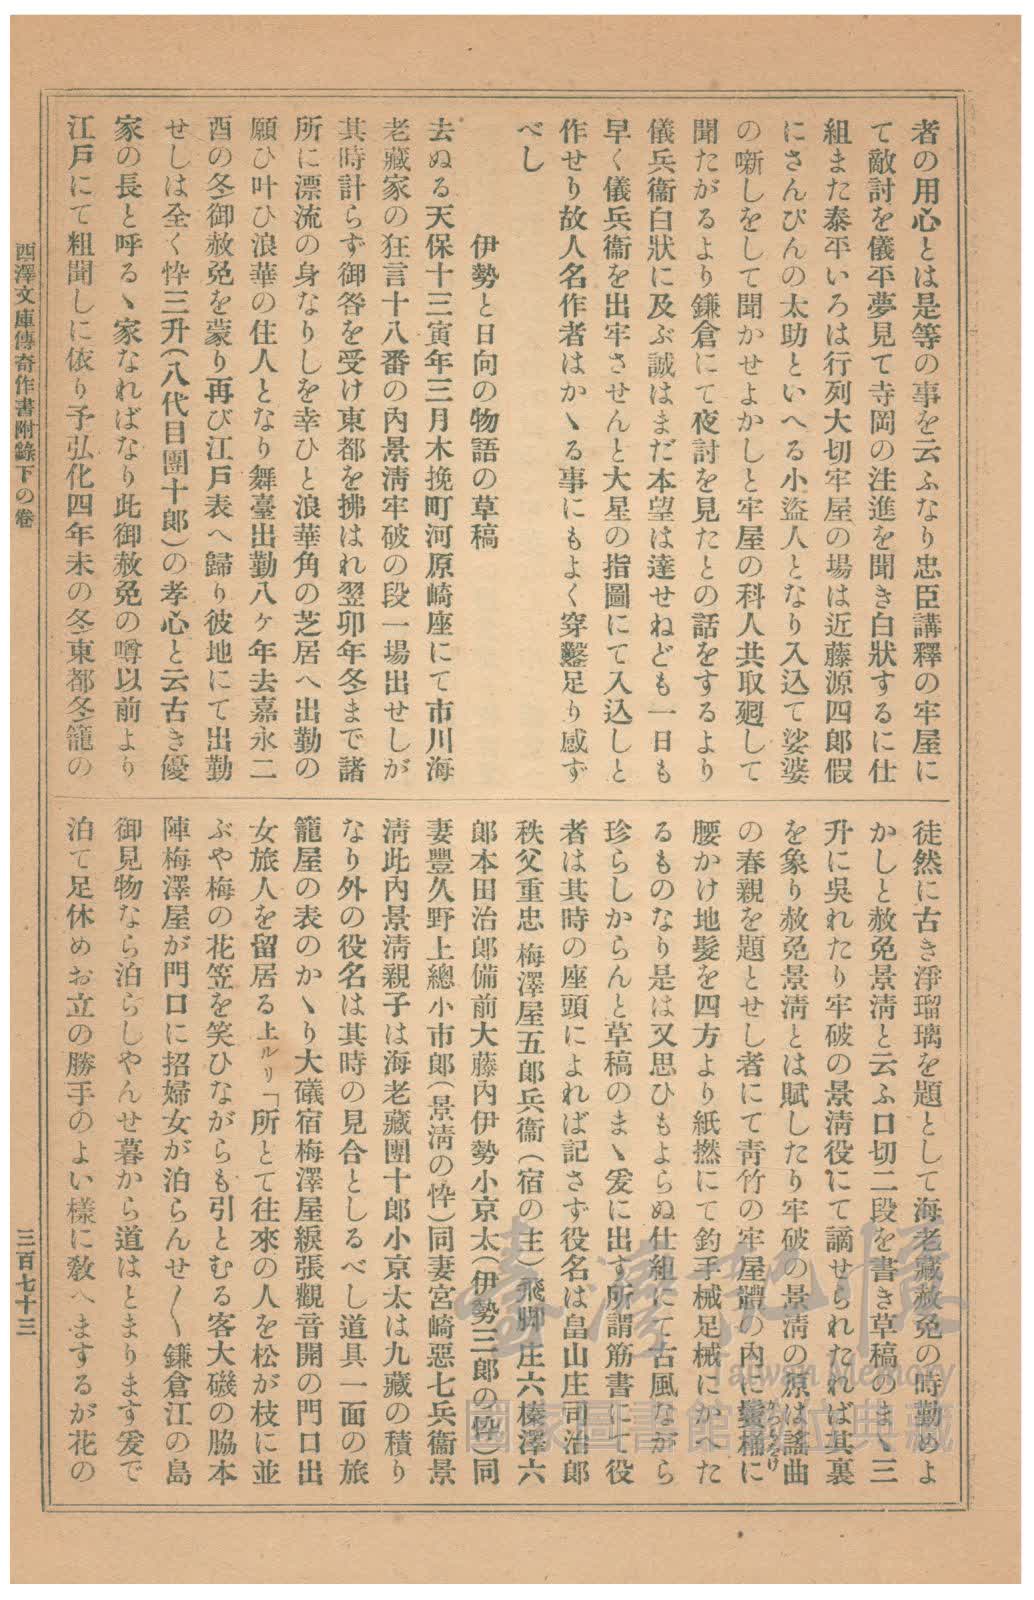 者の用心とは是等の事を云ふなり忠臣講釋の牢屋に
て敵討を儀平夢見て寺岡の注進を聞き白狀するに仕
組また泰平いろは行列大切牢屋の場は近藤源四郎假
にさんぴんの太助といへる小盜人となり入込て娑婆
の噺しをして聞かせよかしと牢屋の科人共取廻して
聞たがるより鎌倉にて夜討を見たとの話をするより
儀兵衞白狀に及ぶ誠はまだ本望は達せねども一日も
早く儀兵衞を出牢させんと大星の指圖にて入込しと
作せり故人名作者はかゝる事にもよく穿鑿足り感ず
べし
伊勢と日向の物語の草稿
去ぬる天保十三寅年三月木挽町河原崎座にて市川海
老藏家の狂言十八番の內景淸牢破の段一場出せしが
其時計らず御咎を受け東都を拂はれ翌卯年冬まで諸
所に漂流の身なりしを幸ひと浪華角の芝居へ出勤の
願ひ叶ひ浪華の住人となり舞臺出勤八ヶ年去嘉永二
酉の冬御赦免を蒙り再び江戶表へ歸り彼地にて出勤
せしは全く忰三升(八代目團十郎)の孝心と云古き優
家の長と呼るゝ家なればなり此御赦免の噂以前より
江戶にて粗聞しに依り予弘化四年未の冬東都冬籠の
徒然に古き淨瑠璃を題として海老藏赦免の時勤めよ
かしと赦免景淸と云ふ口切二段を書き草稿のまゝ三
升に吳れたり牢破の景淸役にて謫せられたれば其裏
を象り赦免景淸とは賦したり牢破の景淸の原は謠曲
の春親を題とせし者にて靑竹の牢屋體の內に鬘桶に
腰かけ地髮を四方より紙撚にて釣手械足械にかゝた
るものなり是は又思ひもよらぬ仕組にて古風ながら
珍らしからんと草稿のまゝ爰に出す所謂筋書にて役
者は其時の座頭によれば記さず役名は畠山庄司治郎
秩父重忠 梅澤屋五郎兵衞(宿の主)飛脚庄六榛澤六
郎本田治郎備前大藤內伊勢小京太(伊勢三郎の忰)同
妻豐久野上總小市郎(景淸の忰)同妻宮崎惡七兵衞景
淸此內景淸親子は海老藏團十郎小京太は九藏の積り
なり外の役名は其時の見合としるべし道具一面の旅
籠屋の表のかゝり大礒宿梅澤屋綟張觀音開の門口出
女旅人を留居る上ルリ「所とて往來の人を松が枝に並
ぶや梅の花笠を笑ひながらも引とむる客大磯の脇本
陣梅澤屋が門口に招婦女が泊らんせ〱鎌倉江の島
御見物なら泊らしやんせ暮から道はとまります爰で
泊て足休めお立の勝手のよい樣に敎へまするが花の
西澤文庫傳奇作書附錄下の卷
三百七十三
臺灣記憶
Taiwan Memory
國家圖書館數位典藏